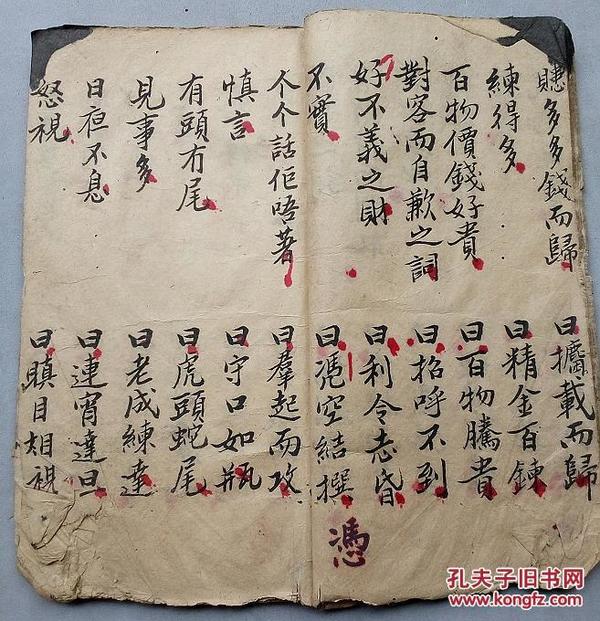 賺多多錢而歸
曰攟載而歸
練得多
曰精金百鍊
百物價錢好貴
曰百物騰貴
對客而自歉之詞
曰招呼不到
好不義之財
曰利令志昏
不實
曰憑空結撰
憑
个个話佢唔著
曰羣起而攻
慎言
曰守口如瓶
有頭冇尾
曰虎頭蛇尾
見事多
曰老成練達
日夜不息
曰連宵達旦
怒視
曰瞋目相視
孔夫子旧书网
www.kongfz.com